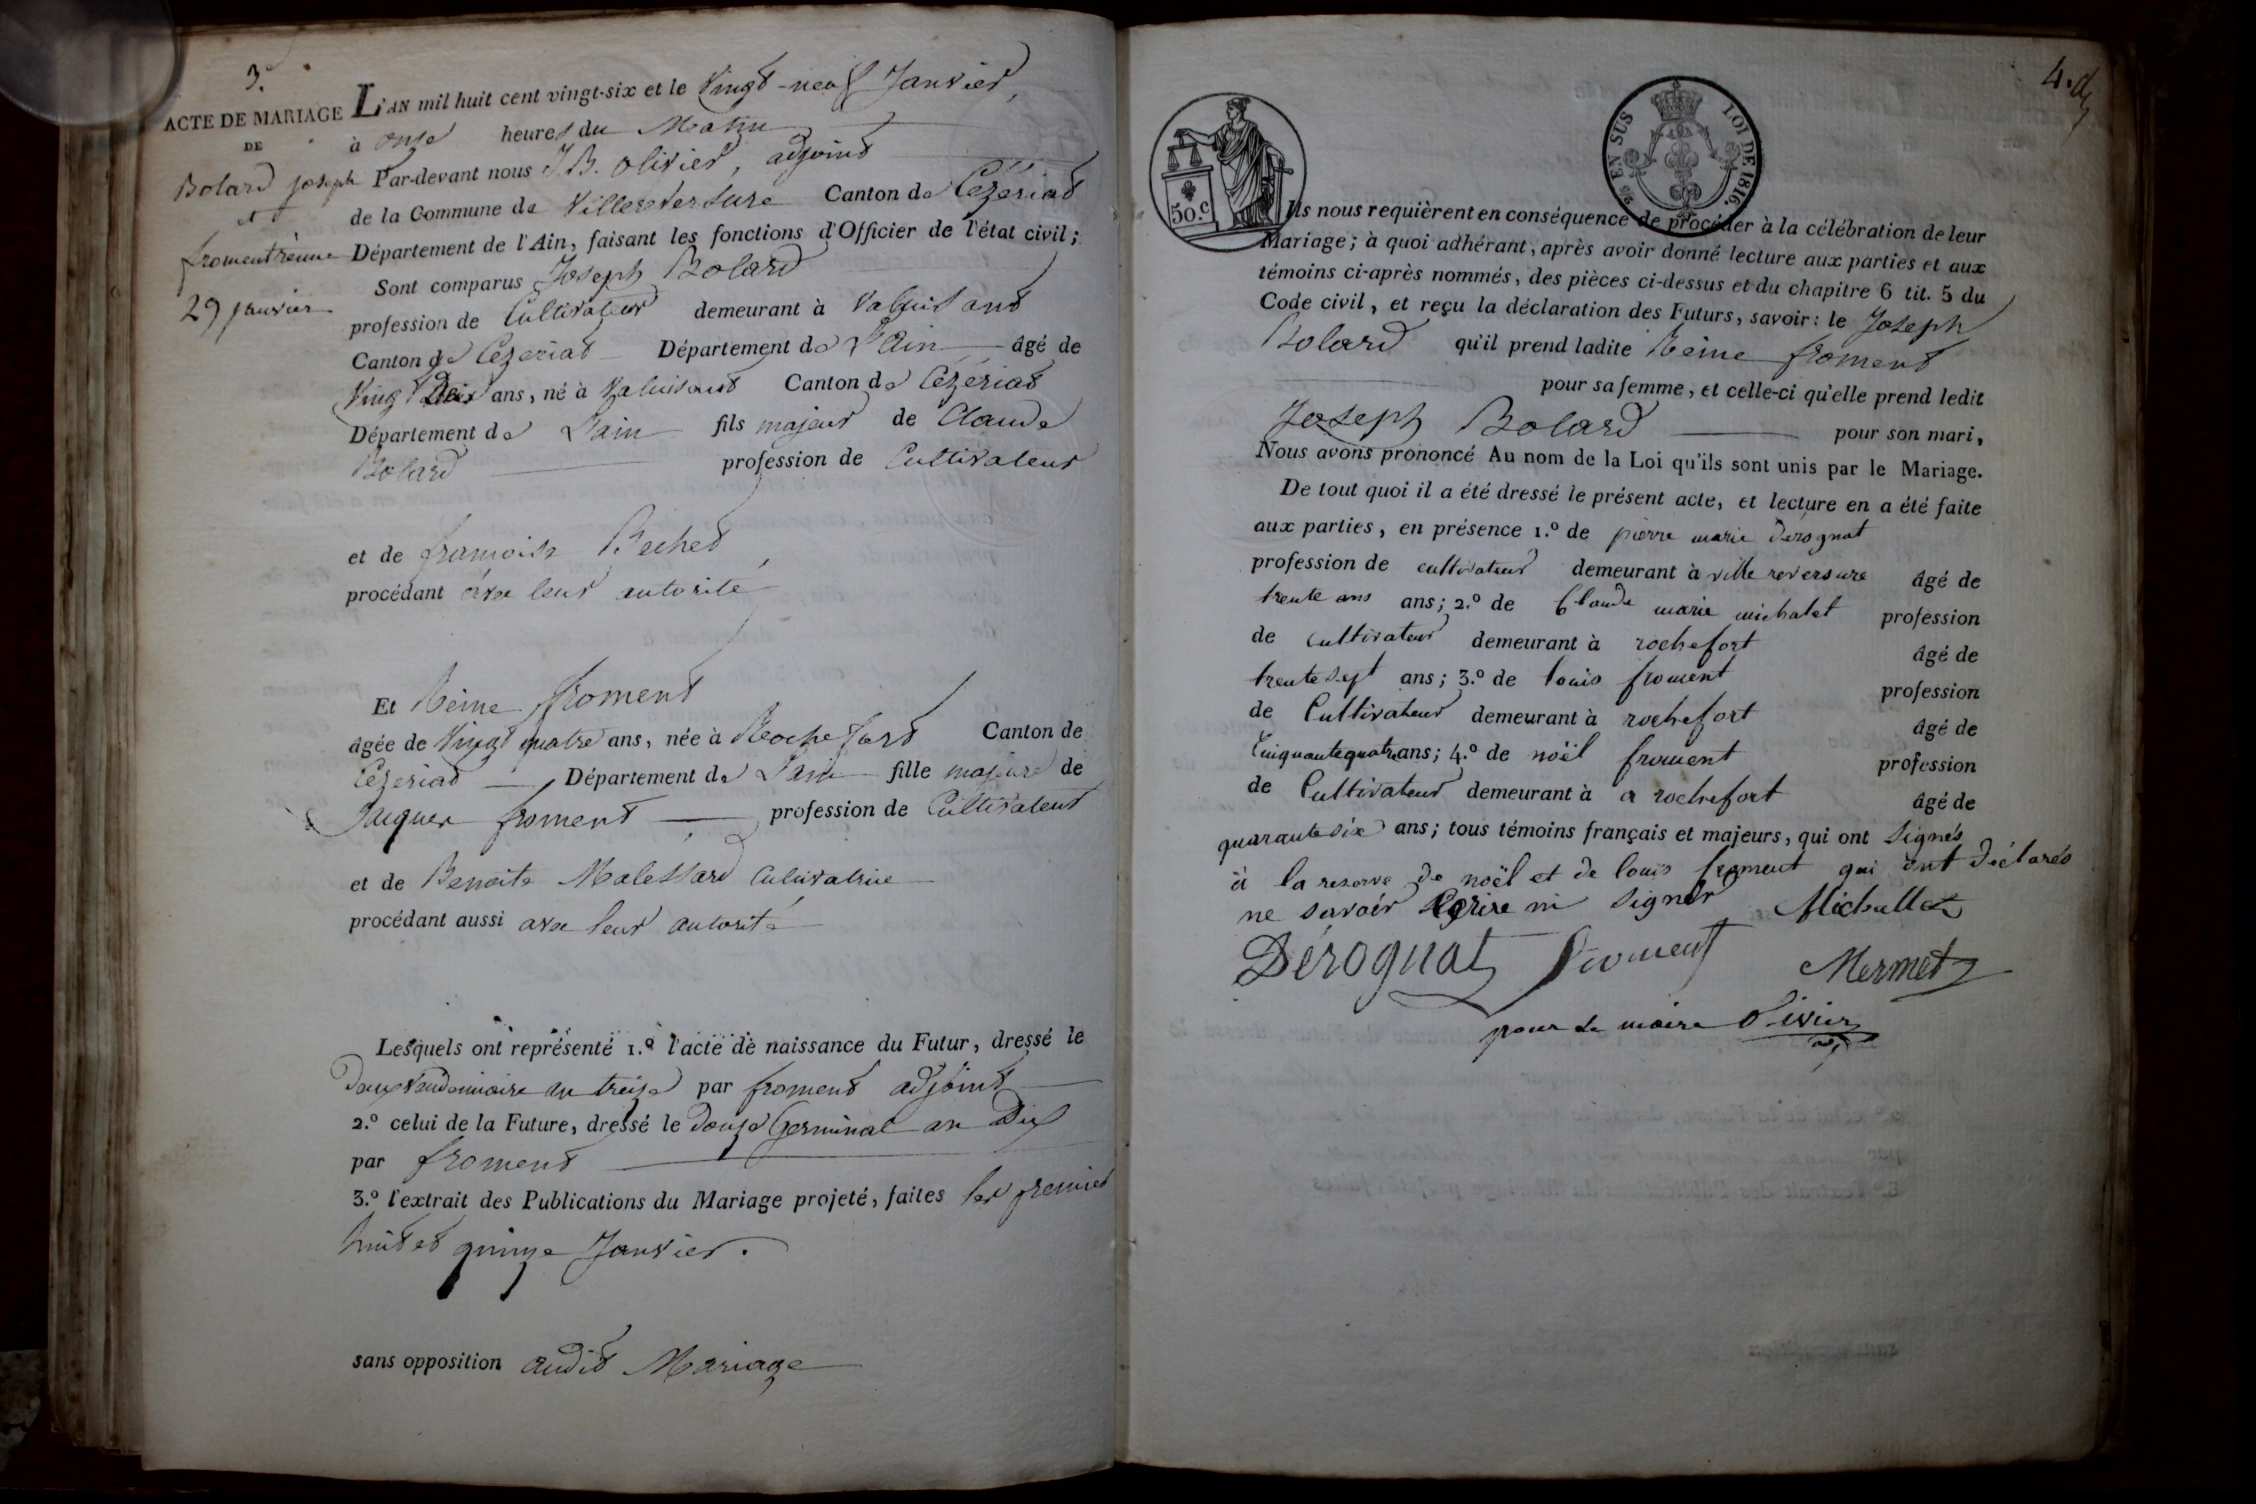 3.
ACTE DE MARIAGE
DE
Bolard joseph
et
froment rèinne
29 janvier
L'AN mil huit cent vingt-six et le Vingt-neuf Janvier,
à onze heures du Matin
Par-devant nous J B. Olivier, adjoint
de la Commune de Villereversure Canton de Cézériat
Département de l'Ain, faisant les fonctions d'Officier de l'état civil;
Sont comparus Joseph Bolard
profession de Cultivateur demeurant à Valuisant
Canton de Cezeriat Département de L'Ain âgé de
Vingt Deux ans, né à Valuisant Canton de Cézériat
Département de L'ain fils majeur de Claude
Bolard profession de Cultivateur
et de françoise Bechet
procédant avec leur autorité
Et Reine froment
âgée de Vingt quatre ans, née à Rochefort Canton de
Cezeriat Département de L'ain fille majeure de
Jacques froment profession de Cultivateur
et de Benoite Malessard Cultivatrice
procédant aussi avec leur autorité
Lesquels ont représenté 1.º l'acte de naissance du Futur, dressé le
Vendemiaire an treize par froment adjoint
2.º celui de la Future, dressé le douze Germinal an Dix
par froment
3.º l'extrait des Publications du Mariage projeté, faites les premier
huit et quinze Janvier.
sans opposition audit Mariage
4. d
50.c
2/5 EN SUS LOI DE 1816.
Ils nous requièrent en conséquence de procéder à la célébration de leur
Mariage; à quoi adhérant, après avoir donné lecture aux parties et aux
témoins ci-après nommés, des pièces ci-dessus et du chapitre 6 tit. 5 du
Code civil, et reçu la déclaration des Futurs, savoir: le Joseph
Bolard qu'il prend ladite Reine froment
pour sa femme, et celle-ci qu'elle prend ledit
Joseph Bolard pour son mari,
Nous avons prononcé Au nom de la Loi qu'ils sont unis par le Mariage.
De tout quoi il a été dressé le présent acte, et lecture en a été faite
aux parties, en présence 1.º de pierre marie dérognat
profession de cultivateur demeurant à ville reversure âgé de
trente ans ans; 2.º de Claude marie michalet profession
de cultivateur demeurant à rochefort âgé de
trente sept ans; 3.º de louis froment profession
de Cultivateur demeurant à rochefort âgé de
Cinquante quatre ans; 4.º de noël froment profession
de Cultivateur demeurant à a rochefort âgé de
quarante six ans; tous témoins français et majeurs, qui ont signés
à la reserve de noël et de louis froment qui ont déclarés
ne savoir Ecrire ni signer Michallet
Dérognat froment Mermet
pour le maire Olivier